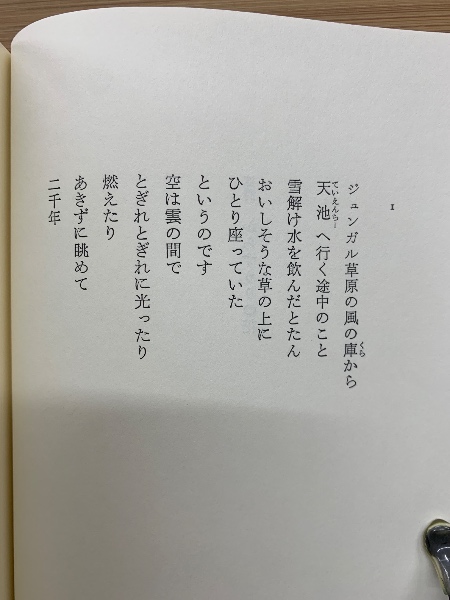 1
ジュンガル草原の風の庫から
天池へ行く途中のこと
雪解け水を飲んだとたん
おいしそうな草の上に
ひとり座っていた
というのです
空は雲の間で
とぎれとぎれに光ったり
燃えたり
あきずに眺めて
二千年